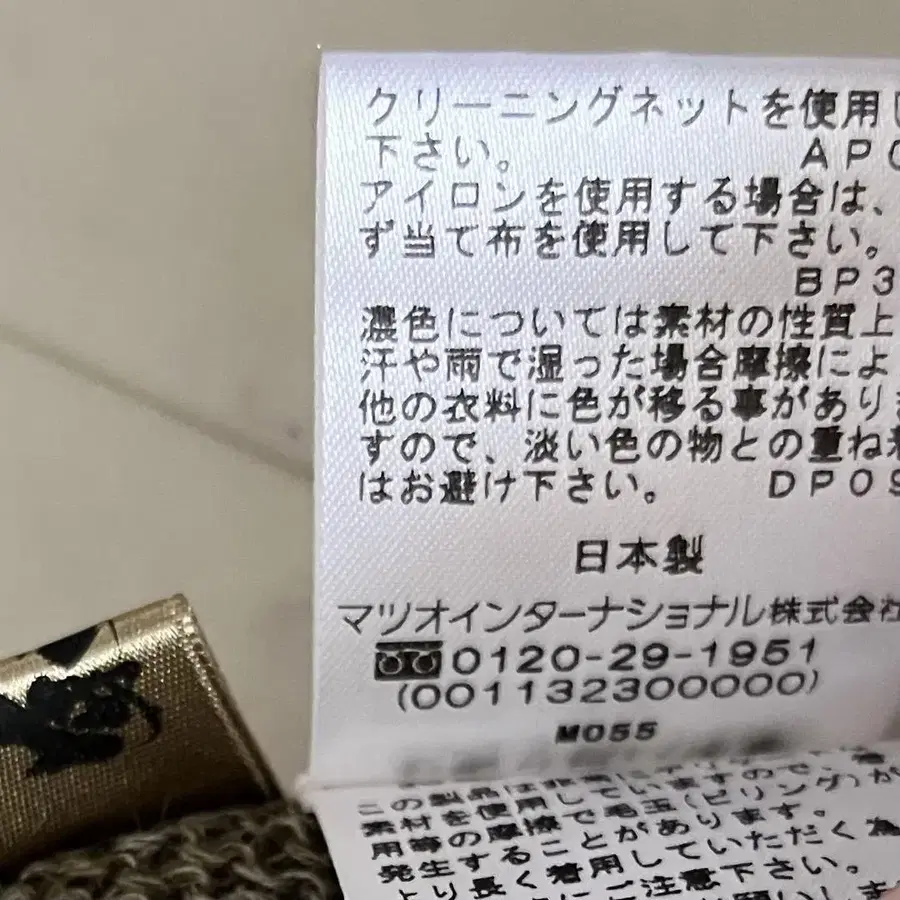 クリーニングネットを使用し
下さい。 AP0
アイロンを使用する場合は、
ず当て布を使用して下さい。
BP3
濃色については素材の性質上
汗や雨で湿った場合摩擦によ
他の衣料に色が移る事があり
すので、淡い色の物との重ね着
はお避け下さい。 DP09
日本製
マツオインターナショナル株式会社
0120-29-1951
(001132300000)
M055
この製品は非常にデリケートな
素材を使用していますので、着
用等の摩擦で毛玉(ピリング)が
発生することがあります。
より長く着用していただく為
にご注意下さい。